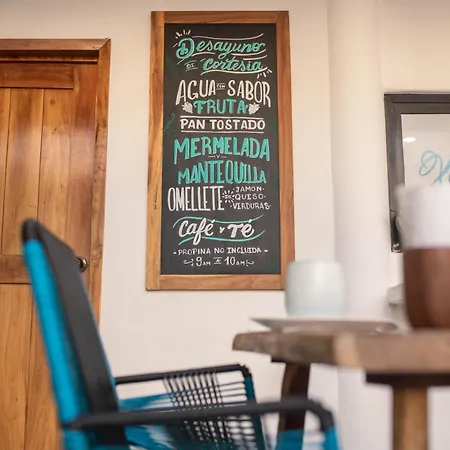 Desayuno
DE Cortesia
AGUA CON SABOR
FRUTA
PAN TOSTADO
MERMELADA
Y
MANTEQUILLA
OMELLETE DE JAMON
QUESO
VERDURAS
Café y Té
PROPINA NO INCLUIDA
9AM A 10AM